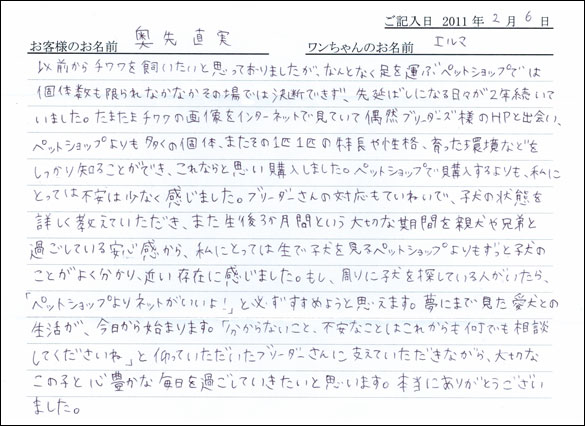 ご記入日 2011 年 2 月 6 日
お客様のお名前 奥先 直実 ワンちゃんのお名前 エルマ
以前からチワワを飼いたいと思っておりましたが、なんとなく足を運ぶペットショップでは
個体数も限られなかなかその場では決断できず、先延ばしになる日々が2年続いて
いました。たまたまチワワの画像をインターネットで見ていて偶然ブリーダーズ様のHPと出会い、
ペットショップよりも多くの個体、またその1匹1匹の特長や性格、育った環境などを
しっかり知ることができ、これならと思い購入しました。ペットショップで購入するよりも、私に
とっては不安は少なく感じました。ブリーダーさんの対応もていねいで、子犬の状態を
詳しく教えていただき、また生後3か月間という大切な期間を親犬や兄弟と
過ごしている安心感から、私にとっては生で子犬を見るペットショップよりもずっと子犬の
ことがよく分かり、近い存在に感じました。もし、周りに子犬を探している人がいたら、
「ペットショップよりネットがいいよ!」と必ずすすめようと思えます。夢にまで見た愛犬との
生活が、今日から始まります。「分からないこと、不安なことはこれからも何でも相談
してくださいね」と仰っていただいたブリーダーさんに支えていただきながら、大切な
この子と心豊かな毎日を過ごしていきたいと思います。本当にありがとうござい
ました。